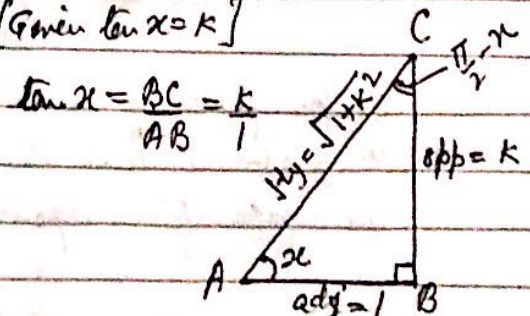 [Given tan x = k]
C
π/2 - x
tan x = BC/AB = k/1
Hy = √1+k²
opp = k
x
A
adj = 1
B